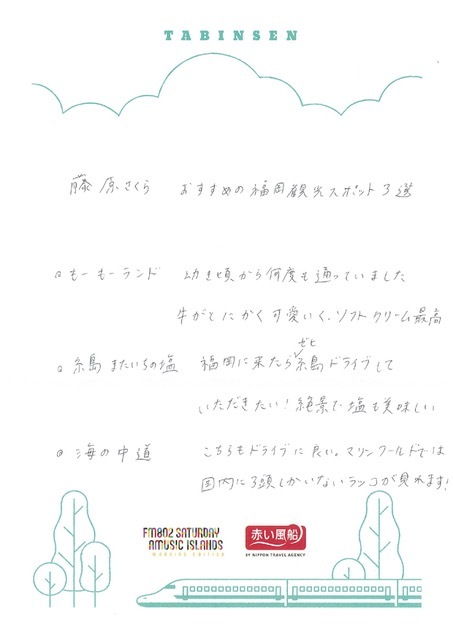 TABINSEN
藤原さくら おすすめの福岡観光スポット3選
◦もーもーランド 幼き頃から何度も通っていました
牛がとにかく可愛いく、ソフトクリーム最高
ゼヒ
◦糸島 またいちの塩 福岡に来たら糸島ドライブして
いただきたい!絶景で塩も美味しい
◦海の中道 こちらもドライブに良い。マリンワールドでは
国内に3頭しかいないラッコが見れます!
FM802 SATURDAY
AMUSIC ISLANDS
MORNING EDITION
赤い風船
BY NIPPON TRAVEL AGENCY